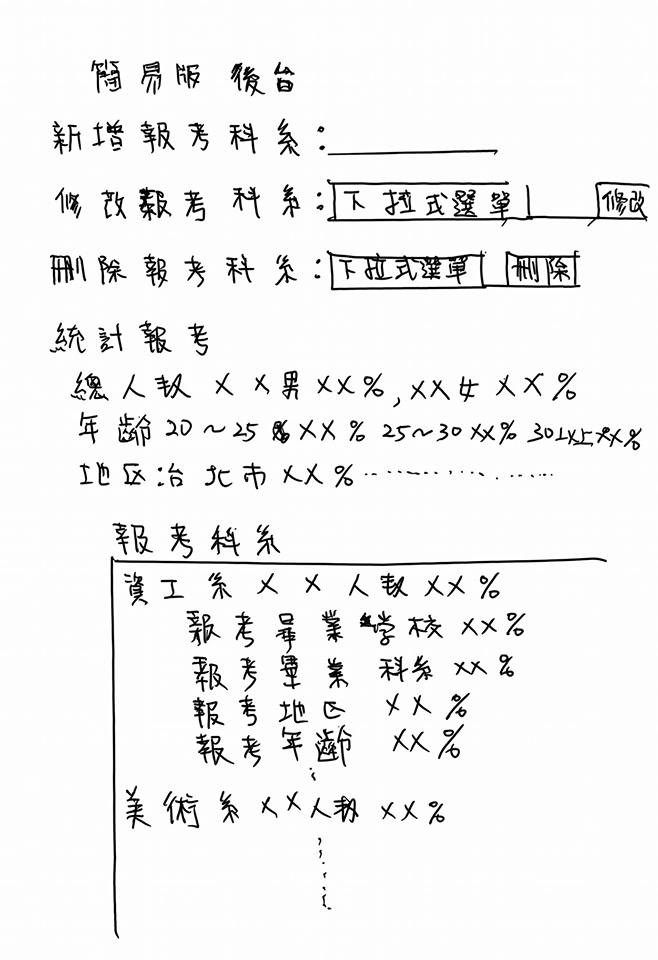 簡易版 後台
新增報考科系：
修改報考科系：下拉式選單 修改
刪除報考科系：下拉式選單 刪除
統計報考
總人数 X X男 XX%, XX女 XX%
年齡20～25 XX% 25～30 XX% 30以上XX%
地区 台北市 XX% ……………
報考科系
資工系 X X 人数 XX%
報考畢業学校 XX%
報考畢業 科系 XX%
報考地区 XX%
報考年齡 XX%
美術系 XX人数 XX%